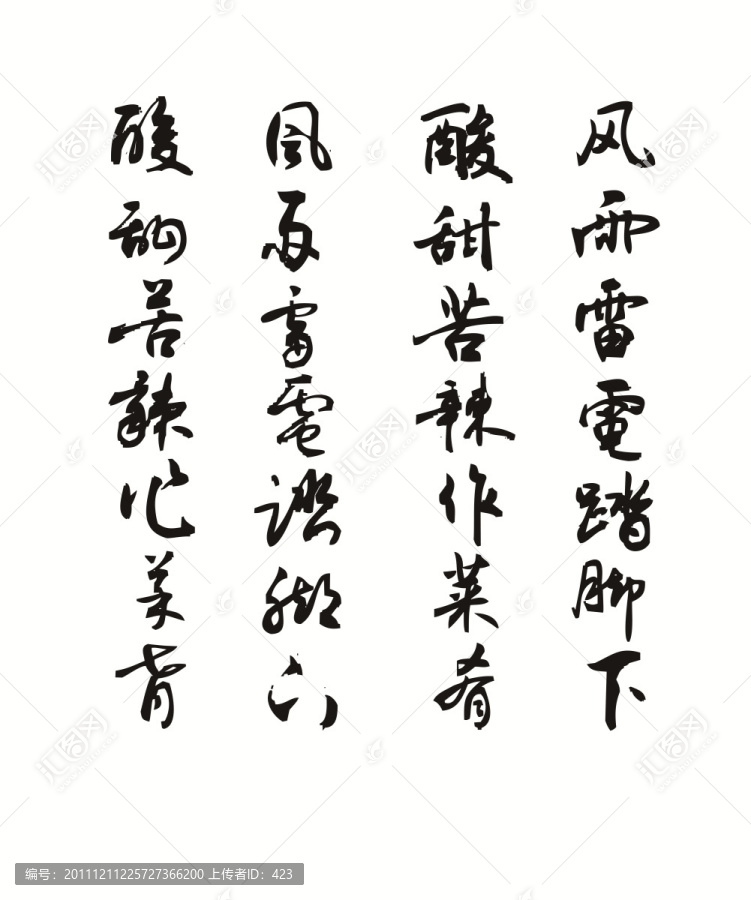 风雨雷電踏脚下
酸甜苦辣作菜肴
风雨雷電踏脚下
酸甜苦辣作菜肴
编号：20111211225727366200 上传者ID：423